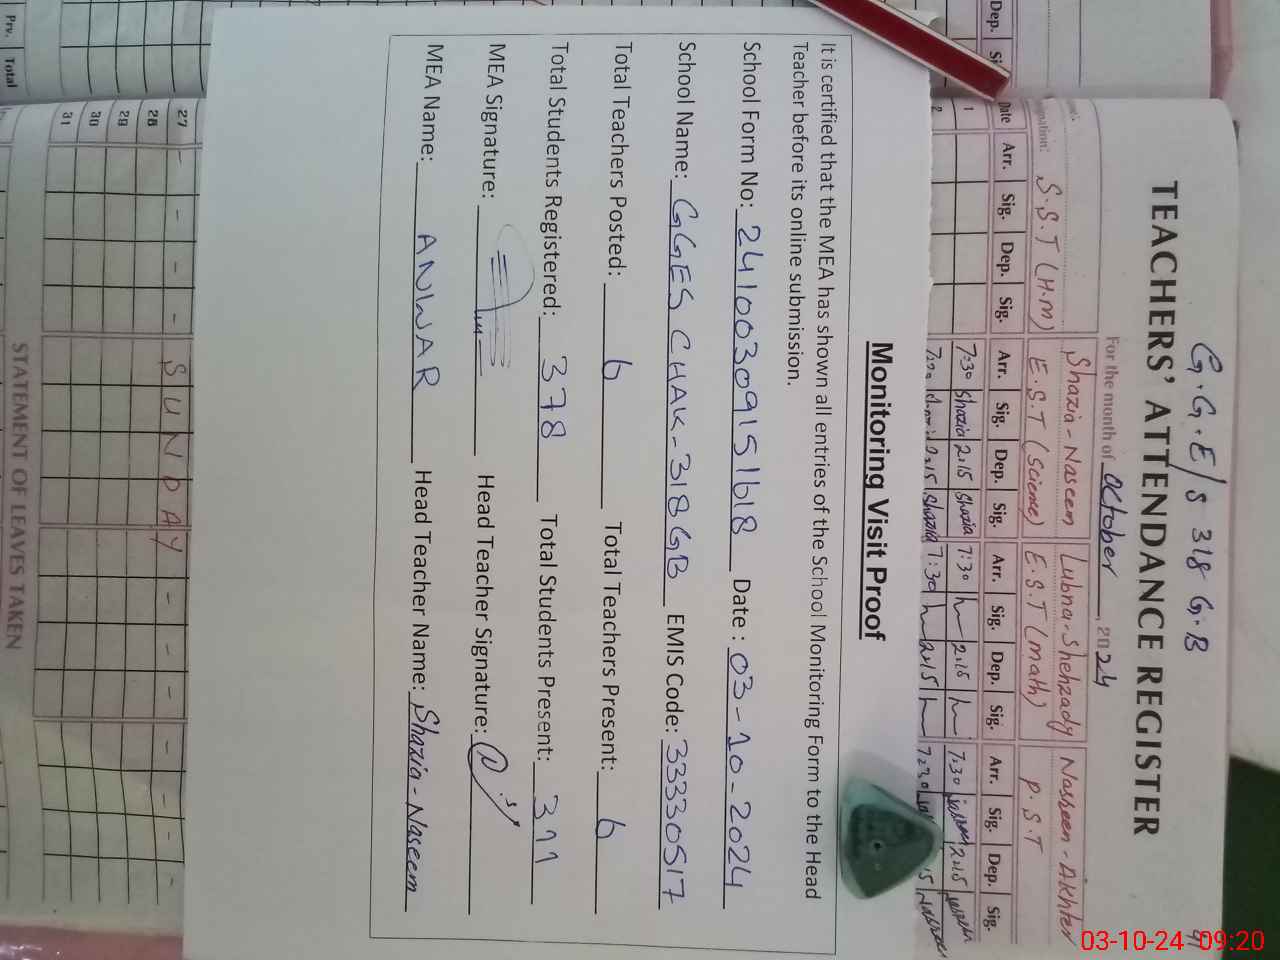 G.G.E/S 318 G.B
TEACHERS' ATTENDANCE REGISTER
For the month of October, 2024
Shazia-Naseem Lubna-Shehzady Nasreen-Akhter
S.S.T (H.M) E.S.T (Science) E.S.T (math) P.S.T
Date Arr. Sig. Dep. Sig. Arr. Sig. Dep. Sig. Arr. Sig. Dep. Sig. Arr. Sig. Dep. Sig.
1 7:30 Shazia 2:15 Shazia 7:30 2:15 7:30 2:15
2 7:30 2:15 Shazia 7:30 2:15 7:30
Monitoring Visit Proof
It is certified that the MEA has shown all entries of the School Monitoring Form to the Head
Teacher before its online submission.
School Form No: 24100309151618 Date : 03-10-2024
School Name: GGES CHAK-318GB EMIS Code: 33330517
Total Teachers Posted: 6 Total Teachers Present: 6
Total Students Registered: 378 Total Students Present: 311
MEA Signature: Head Teacher Signature:
MEA Name: ANWAR Head Teacher Name: Shazia-Naseem
27 SUNDAY
28
29
30
31
STATEMENT OF LEAVES TAKEN
Prv. Total
Dep.
03-10-24 09:20